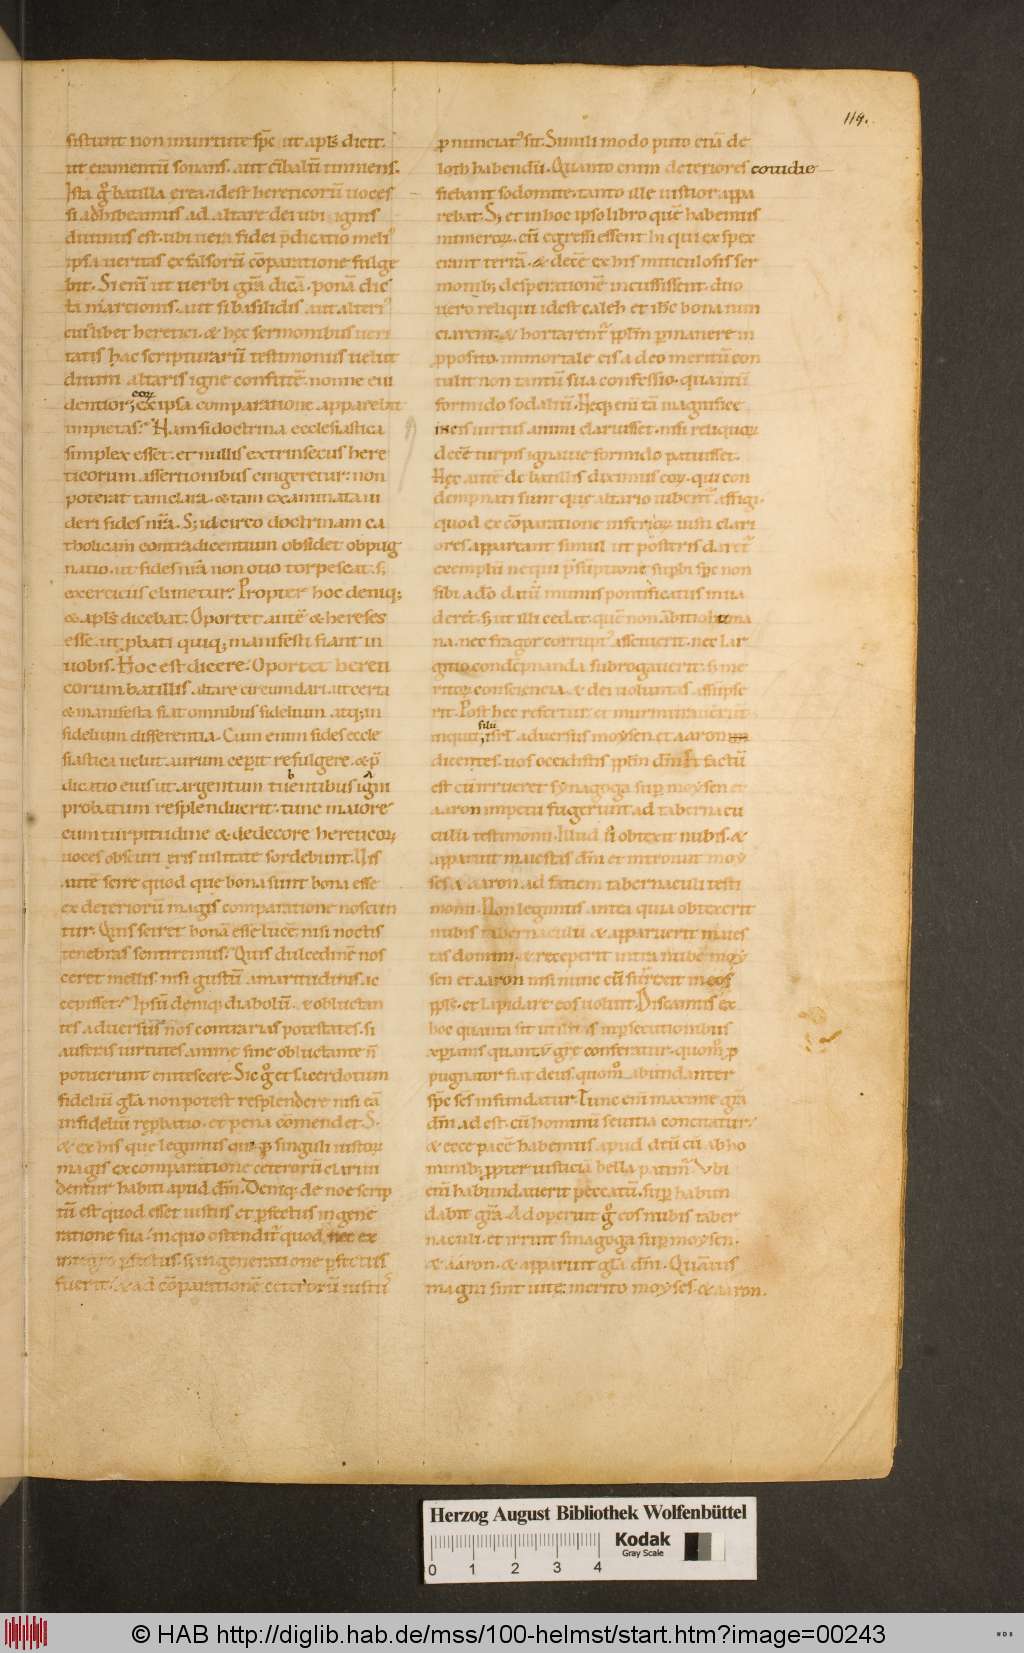 114.
sistunt non in uirtute spc̄ ut apls̄ dicit.
ut eramentū sonans. aut cimbalū tinniens.
Ista g̊ batilla erea. idest hereticorū uoces
si adhibeamus ad altare dei ubi ignis
diuinus est. ubi uera fidei p̄dicatio meliꝰ
ipsa ueritas ex falsorū cōparatione fulge
bit. Si enī ut uerbi gr̄a dicā. ponā dic
ta marcionis. aut si basilidis aut alteriꝰ
cuiꝰlibet heretici. & hęc sermonibus ueri
tatis hac scripturarū testimoniis uelut
diuini altaris igne confutē. nonne eui
dentior; eoꝝ ex ipsa comparatione apparebit
impietas? Nam si doctrina ecclesiastica
simplex esset. et nullis extrinsecus here
ticorum assertionibus cingeretur. non
poterat tam clara. & tam examinata ui
deri fides nr̄a. S; idcirco doctrinam ca
tholicam contradicentium obsidet obpug
natio. ut fides nr̄a non otio torpescat. s;
exerciciis elimetur. Propter hoc deniq;
& apls̄ dicebat. Oportet autē & hereses
esse. ut ꝓbati quiq; manifesti fiant in
uobis. Hoc est dicere. Oportet hereti
corum batillis altare circumdari. ut certa
& manifesta fiat omnibus fidelium atq; in
fidelium differentia. Cum enim fides eccle
siastica uelut aurum ceperit refulgere. & p̄
dicatio eius ut argentum tuentibus igni
b
probatum resplenduerit. tunc maiore
cum turpitudine & dedecore hereticoꝝ
uoces obscuri eris uilitate sordebunt. Vis
autē scire quod que bona sunt bona esse
ex deteriorū magis comparatione noscun
tur. Quis sciret bonā esse lucē. nisi noctis
tenebras sentiremus? Quis dulcedinē nos
ceret mellis. nisi gustū amaritudinis ac
cepisset? Ipsū deniq; diabolū. & obluctan
tes aduersus nos contrarias potestates. si
auferis uirtutes anime sine obluctante n̄
potuerunt enitescere. Sic g̊ et sacerdotum
fideliū gl̄a non potest resplendere nisi eā
infideliū reprobatio. et pena cōmendet. S;
& ex his que legimus quia ꝑ singuli iustoꝝ
magis ex comparatione ceterorū clarui
dentur habiti apud dm̄. Deniq; de noe scrip
tū est quod esset iustus et ꝑfectus in gene
ratione sua. in quo ostenditꝰ quod nec ex
integro ꝑfectus. s; in generatione ꝑfectus
fuerit. & ad cōparationē ceterorū iustiꝰ
ꝓnunciatꝰ sit. Simili modo puto etiā de
loth habendū. Quanto enim deteriores cotidie
fiebant sodomite. tanto ille iustior appa
rebat. S; et in hoc ipso libro quē habemus
numeroꝝ. cū egressi essent hi qui exspex
erant terrā. & decē ex his miticulosis ser
monib; desperationē incussissent. duo
uero reliqui idest caleb et ihc̄ bona nun
ciarent. & hortarentꝰ ppłm ꝑmanere in
ꝓposito. immortale eis a deo meritū con
tulit non tantū sua confessio. quantū
formido sodaliū. Neq; enī tā magnifice
in eis uirtus animi claruisset. nisi reliquoꝝ
decē turpis ignauie formido patuisset.
Hęc autē de batillis diximus eoꝝ. qui con
dempnati sunt que altario iubentꝰ affigi.
quod ex cōparatione inferioꝝ iusti clari
ores appareant simul ut posteris daretꝰ
exemplū ne qui p̄sūptione supbi spc̄ non
sibi a dō datū munus pontificatus inua
derēt. s; ut illi cedat. quē non ābitio huma
na. nec fragor corruptꝰ asseuerit. nec lar
gitio condēpnanda subrogauerit. s; me
ritoꝝ conscientia. & dei uoluntas assūpse
rit. Post hec refertur. et murmurauerūt
inquit; filii isrł aduersus moysen et aaron
dicentes. uos occidistis ppłm dm̄. Et factū
est cū irrueret synagoga sup moysen et
aaron impetu fugerunt ad tabernacu
culū testimonii. Illud s̄i obtexit nubis. &
apparuit maiestas dm̄. et introiuit moy
ses & aaron ad faciem tabernaculi testi
monii. Non legimus antea quia obtexerit
nubis tabernaculū & apparuerit maies
tas domini. & receperit intra nubē moy
sen et aaron nisi nunc cū surrexit in eos
ppłs. et lapidare eos uoluit. Discamus ex
hoc quanta sit utilitas in ꝑsecutionibus
pugnator fiat deus. quom̊ abundanter
spc̄ scs̄ infundatur. Tunc enī maxime gr̄a
dm̄ adest. cū hominū seuitia concitatur.
& ecce pacē habemus apud dm̄ cū ab ho
minib; ꝓpter iusticiā bella patimꝰ. Vbi
enī habundauerit peccatū. sup habun
dabit gr̄a. Ad operuit g̊ eos nubis taber
naculi. et irruit sinagoga sup moysen.
& aaron. & apparuit gl̄a dm̄. Quantus
magni sint uite merito moyses. & aaron.
Herzog August Bibliothek Wolfenbüttel
Kodak
Gray Scale
0 1 2 3 4
© HAB http://diglib.hab.de/mss/100-helmst/start.htm?image=00243